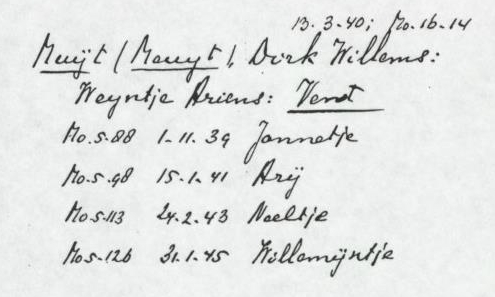 13-3-40; Mo.16-14
Muijt (Meuyt), Dirk Willems:
Weyntje Ariens: Vend
Mo.5-88 1-11.39 Jannetje
Mo.5-98 15-1-41 Arij
Mo.5-113 24.2-43 Neeltje
Mo.5-126 31-1-45 Willemijntje